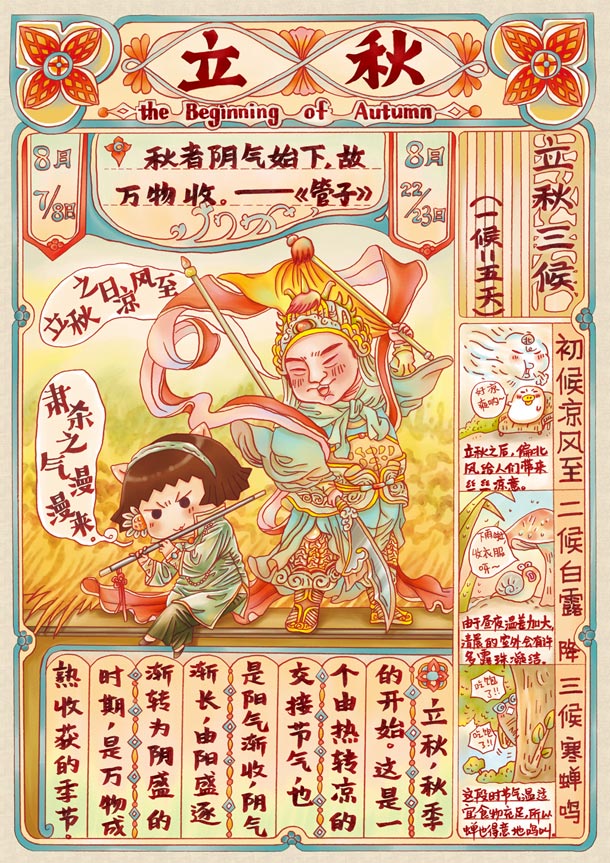 立秋
the Beginning of Autumn
8月
7/8日
秋者阴气始下,故
万物收。——《管子》
8月
22/23日
立秋三候
(一候=五天)
立秋
之日凉风至
肃杀之
气漫
漫来。
初候凉风至
北
好凉
爽呐~
立秋之后,偏北
风给人们带来
丝丝凉意。
二候白露降
下雨啦
收衣服
呀~
由于昼夜温差加大
清晨的室外会有许
多露珠凝结。
三候寒蝉鸣
吃饱
了!!
吃饱
了!!
这段时节气温适
宜食物充足,所以
蝉也得意地鸣叫。
立秋,秋季
的开始。这是一
个由热转凉的
交接节气,也
是阳气渐收,阴气
渐长,由阳盛逐
渐转为阴盛的
时期,是万物成
熟收获的季节。